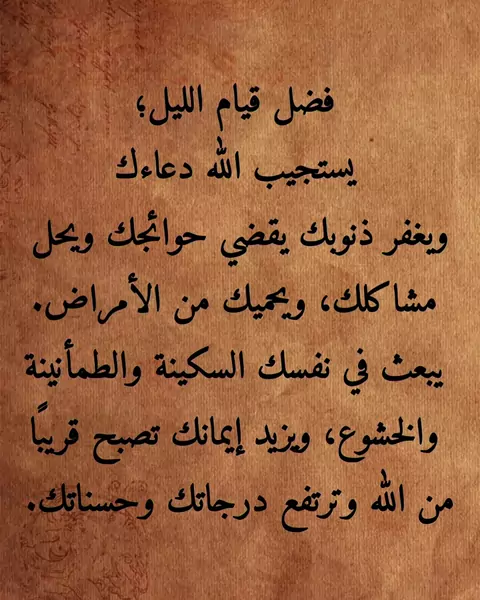 فضل قيام الليل؛
يستجيب الله دعاءك
ويغفر ذنوبك يقضي حوائجك ويحل
مشاكلك، ويحميك من الأمراض.
يبعث في نفسك السكينة والطمأنينة
والخشوع، ويزيد إيمانك تصبح قريبًا
من الله وترتفع درجاتك وحسناتك.